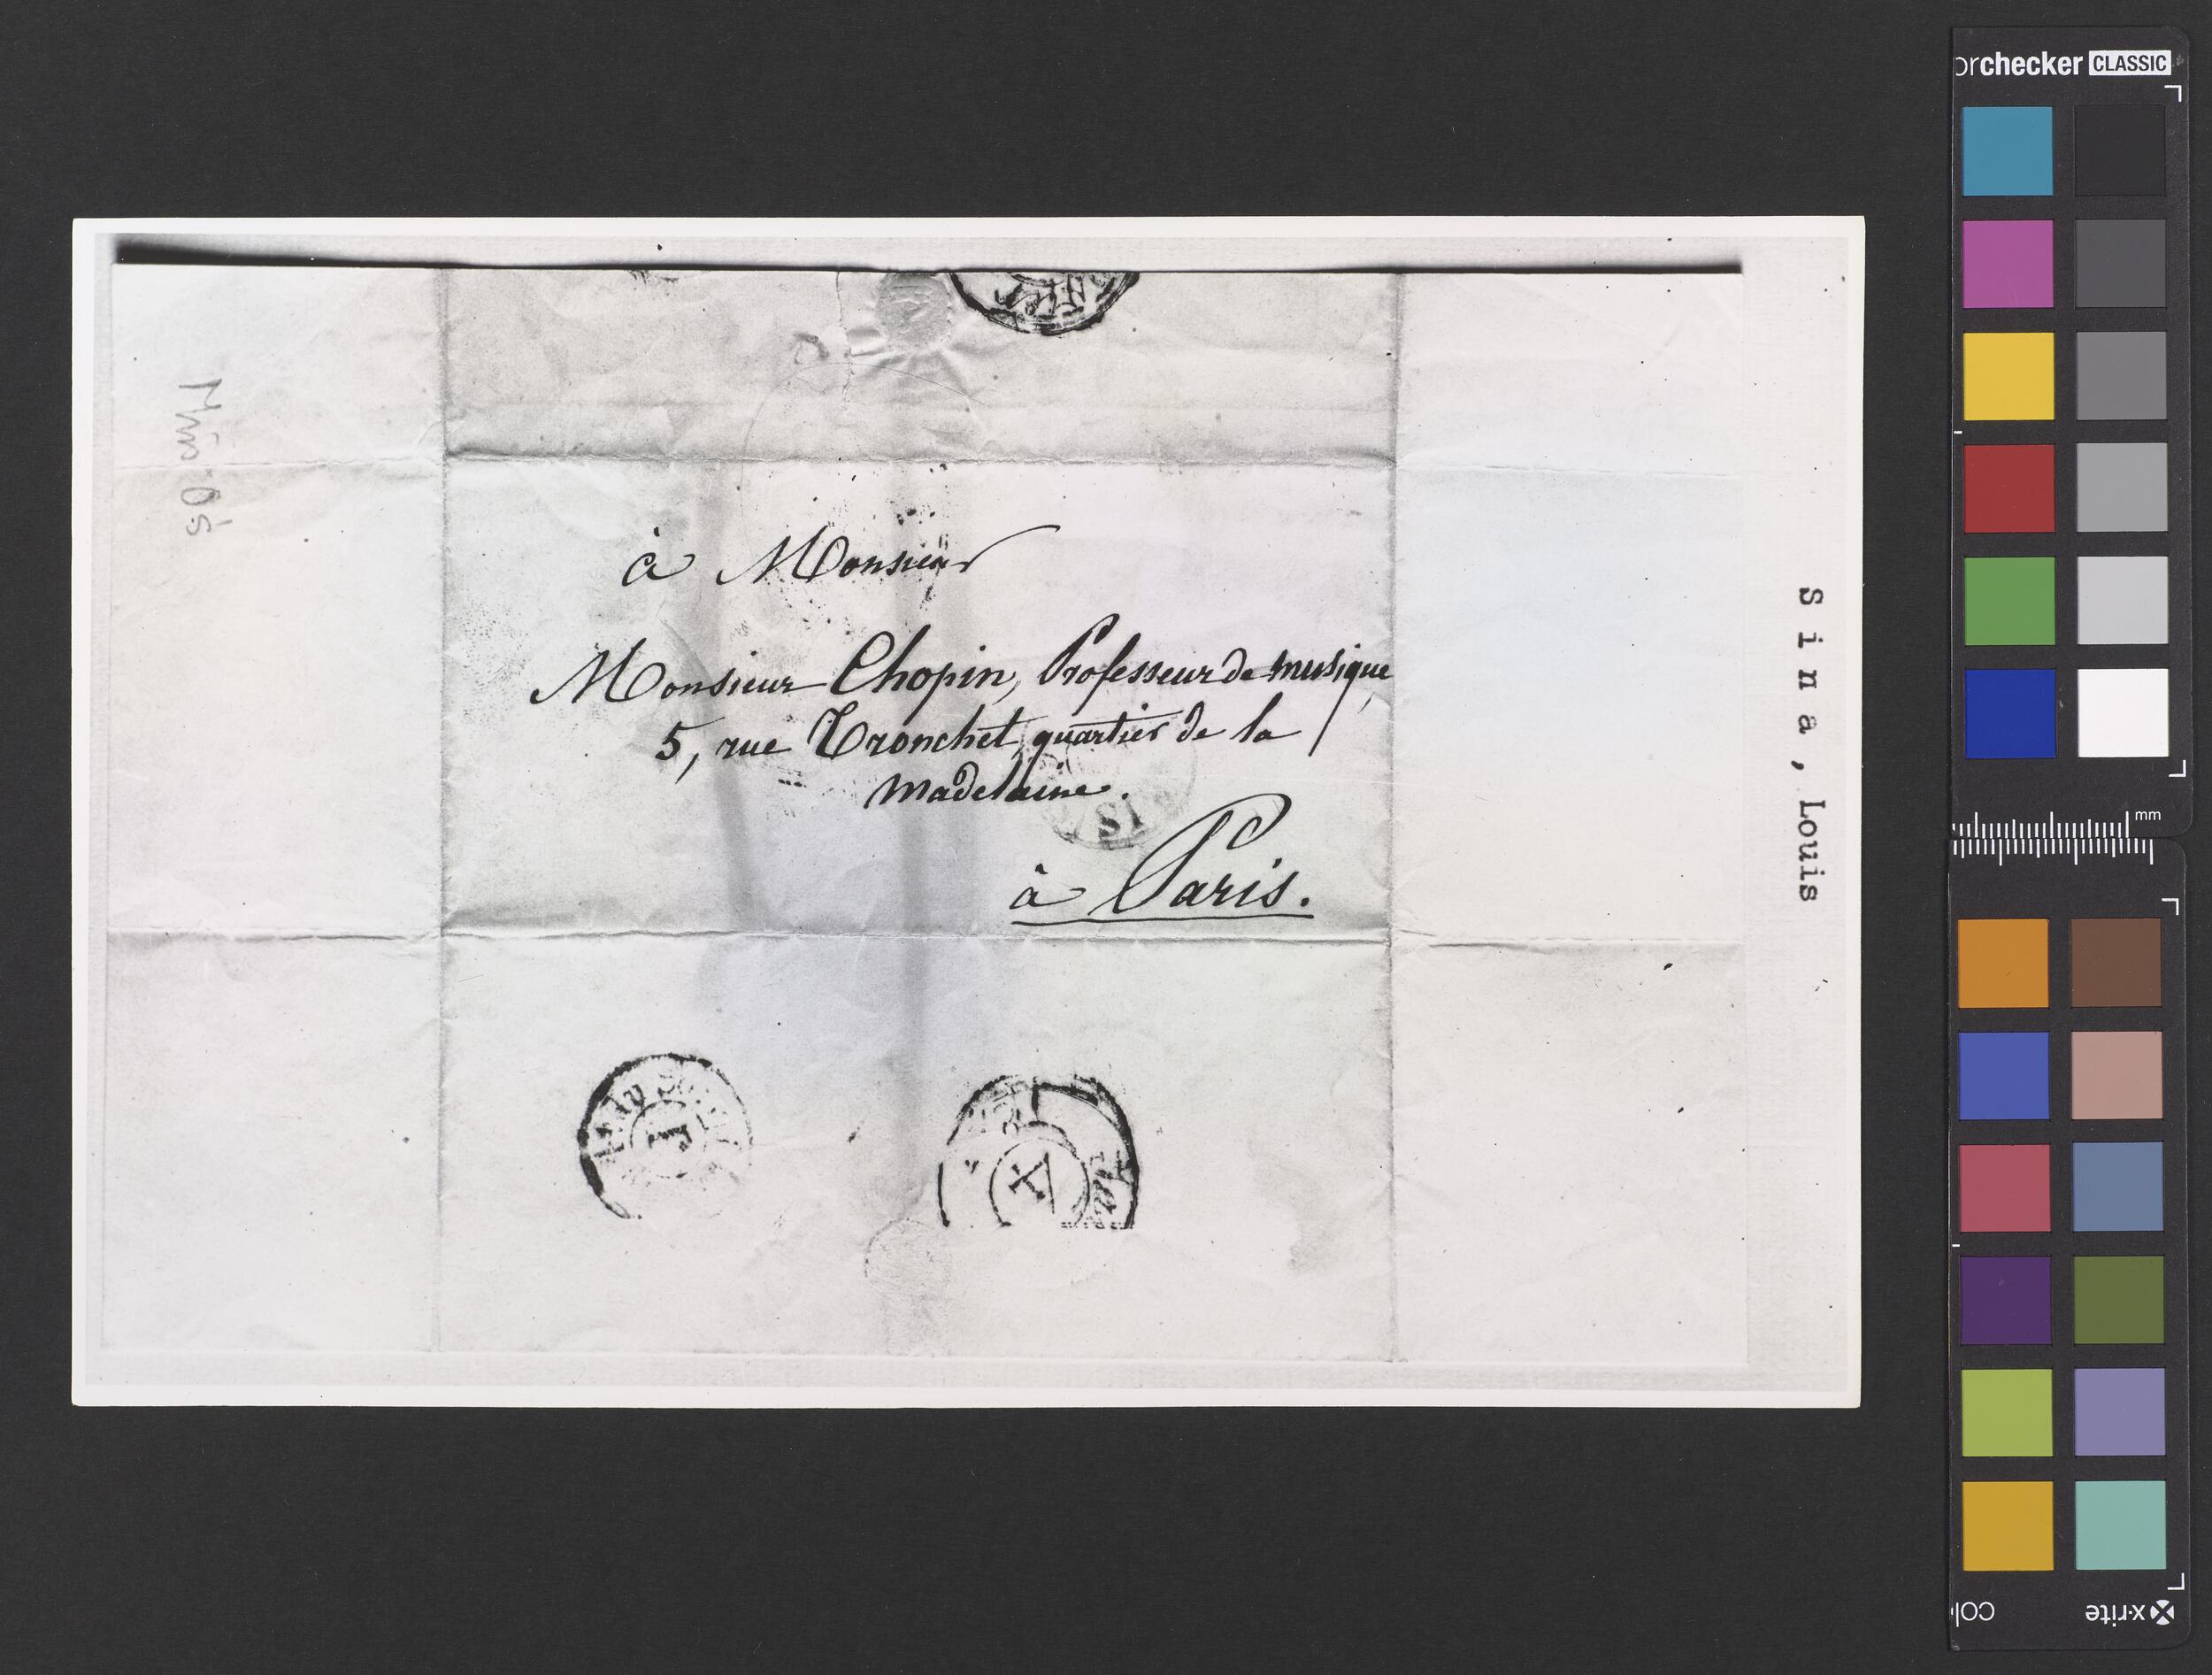 à Monsieur
Monsieur Chopin, Professeur de musique,
5, rue Tronchet, quartier de la
Madelaine.
à Paris.
Sina, Louis
orchecker CLASSIC
mm
x-rite
col